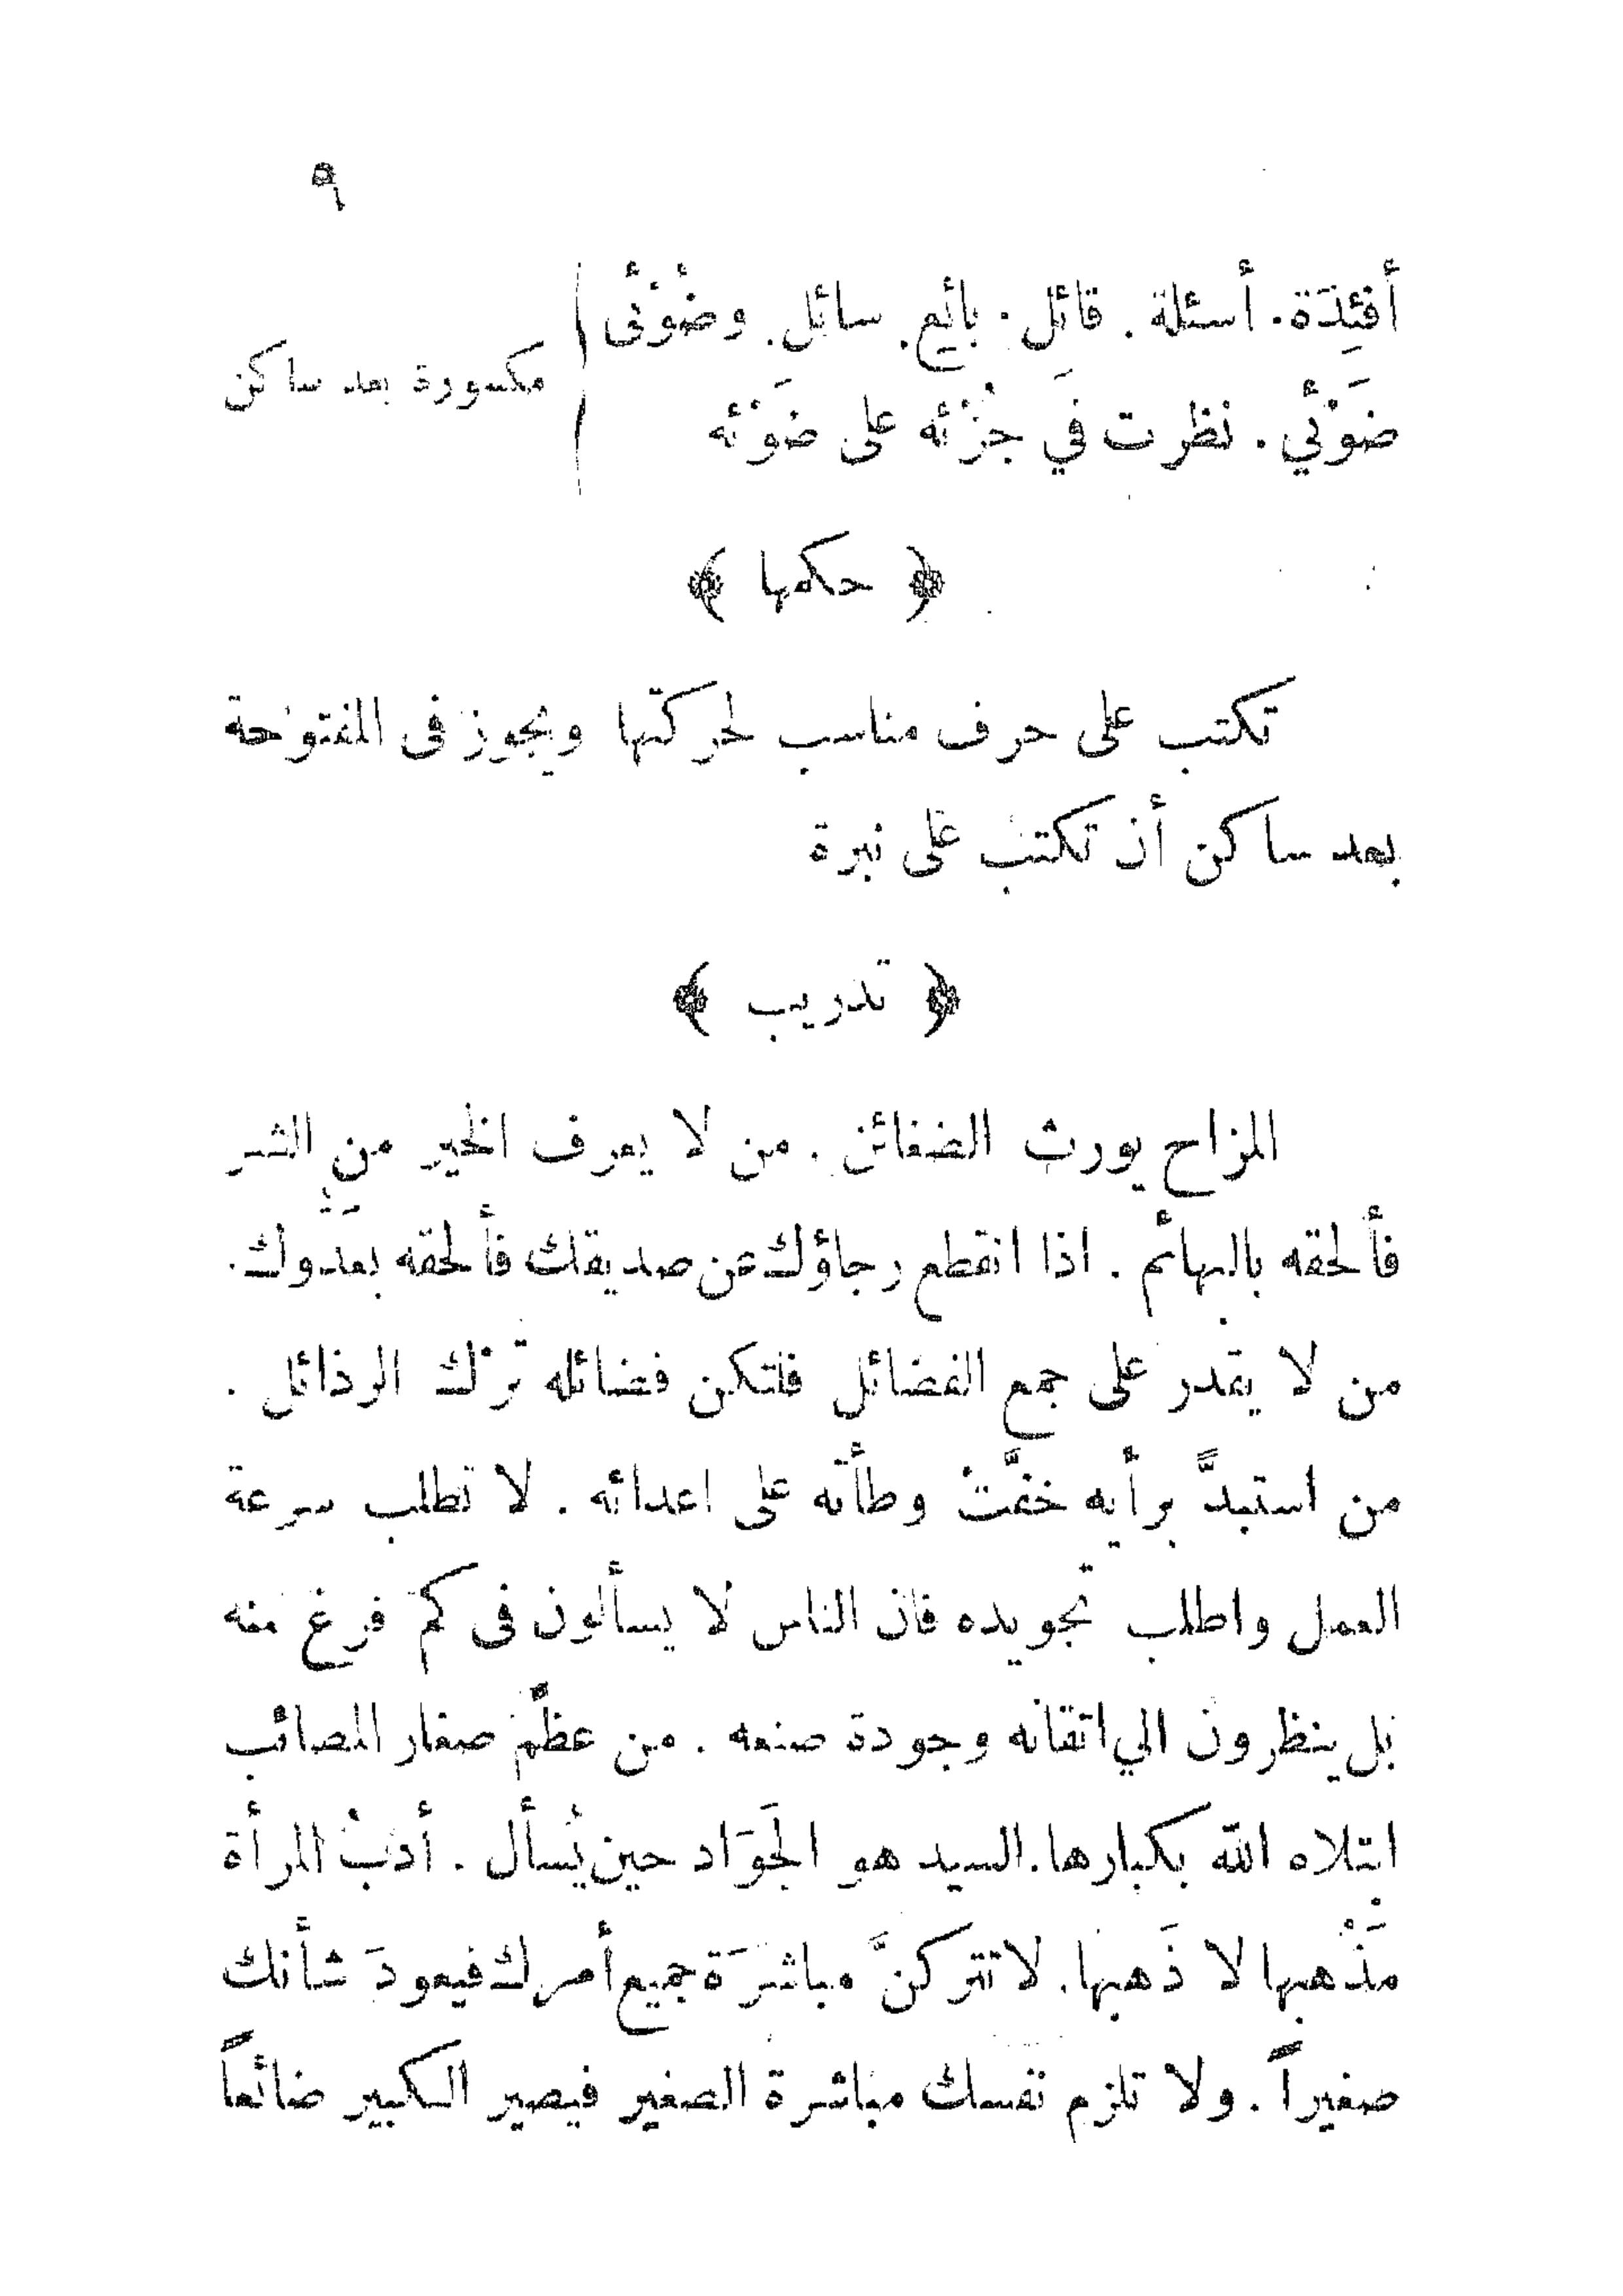 ٩
أفئِدَة. أسئلة. قائل. بائع. سائل. وضُوْئى
مكسورة بعد ساكن
ضَوْئي. نظرت في جُزْئه على ضَوْئه
﴿ حكمها ﴾
تكتب على حرف مناسب لحركتها ويجوز فى المفتوحة
بعد ساكن أن تكتب على نبرة
﴿ تدريب ﴾
المزاح يورث الضغائن. من لا يعرف الخير من الشر
فألحقه بالبهائم. اذا انقطع رجاؤك عن صديقك فألحقه بعَدُوك.
من لا يقدر على جمع الفضائل فلتكن فضائله ترْك الرذائل.
من استبدَّ برأيه خفَّتْ وطأته على اعدائه. لا تطلب سرعة
العمل واطلب تجويده فان الناس لا يسألون فى كم فرغ منه
بل ينظرون الي اتقانه وجودة صنعه. من عظَّم صغار المصائب
ابتلاه الله بكبارها. السيد هو الجَوَاد حين يُسأل. أدبُ المرأة
مَذْهبها لا ذَهبها. لا تتركنَّ مباشرَة جميع أمرك فيعودَ شأنك
صغيراً. ولا تلزم نفسك مباشرة الصغير فيصير الكبير ضائعاً